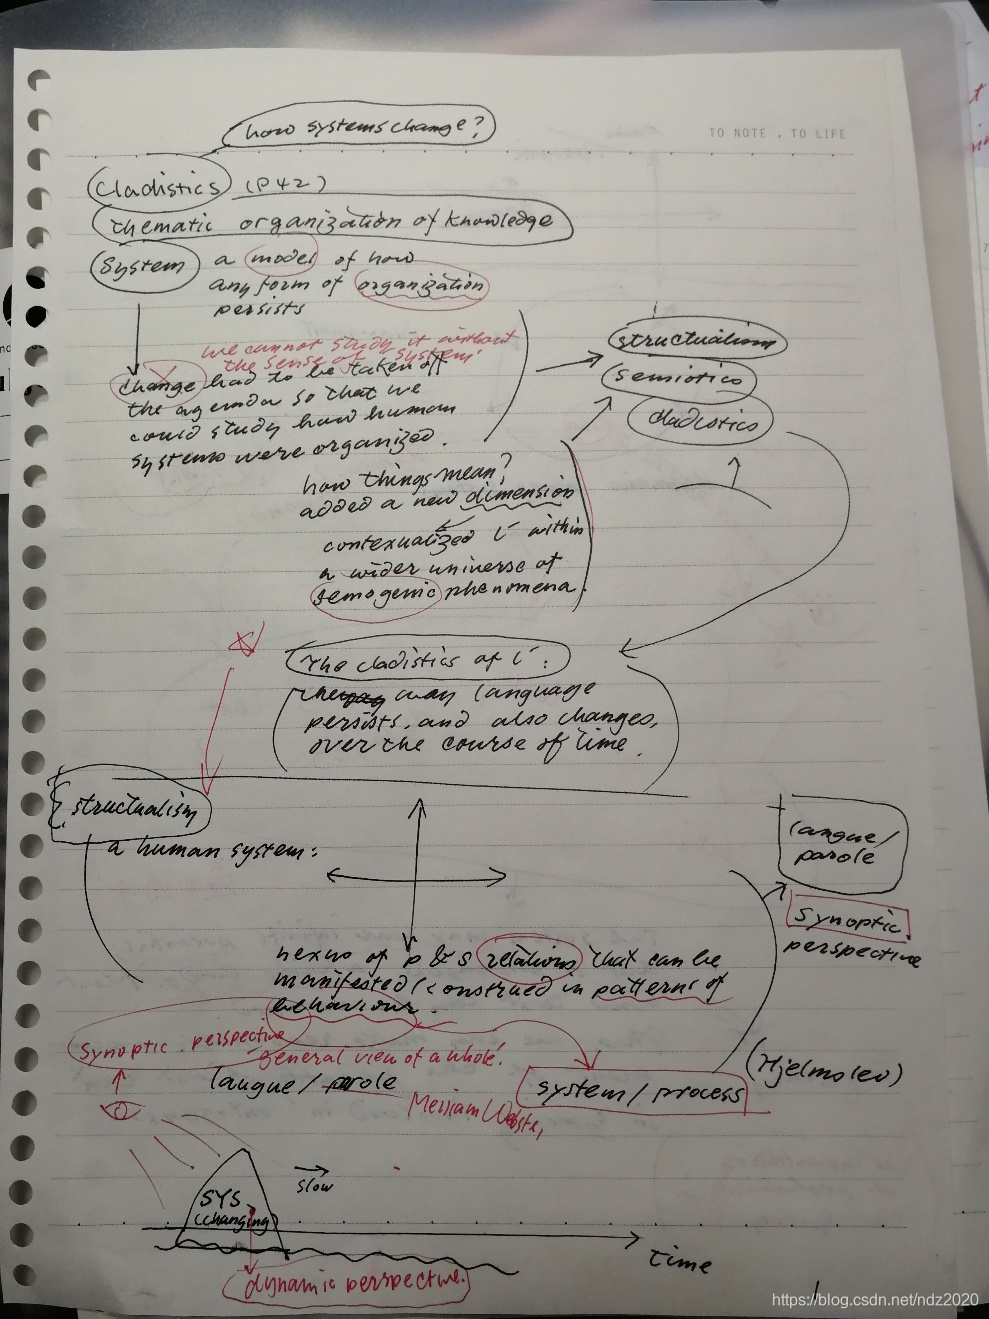 how systems change?
TO NOTE . TO LIFE
Cladistics (P42)
thematic organization of knowledge
System a model of how
any form of organization
persists
we cannot study it without
the sense of 'system'
change had to be taken off
the agenda so that we
could study how human
systems were organized.
structualism
semiotics
cladistics
how things mean?
added a new dimension
contexualized l' within
a wider universe of
semogenic phenomena.
The cladistics of l':
way language
persists, and also changes,
over the course of time.
structualism
a human system:
langue/
parole
synoptic
perspective
nexus of p & s relations that can be
manifested/construed in patterns of
behaviour.
synoptic perspective
general view of a whole!
langue/parole
system/process
(Hjelmslev)
Merriam Webster
SYS
(changing)
slow
time
dynamic perspective.
https://blog.csdn.net/ndz2020